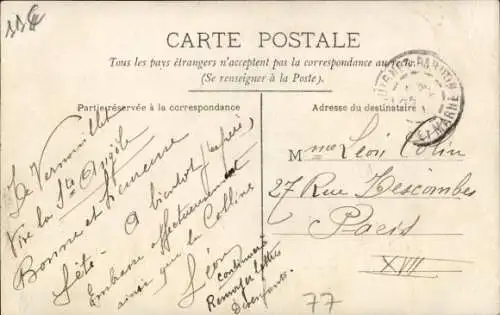 CARTE POSTALE
Tous les pays étrangers n'acceptent pas la correspondance au recto
(Se renseigner à la Poste).
Partie réservée à la correspondance
Adresse du destinataire
De Verneuillet
Vive la Ste Angèle
Bonne et Heureuse
fête. A bientôt
Embrasse affectueusement
ainsi que la Colline
Léon
continuera
Remuser lettres
Mme Léon Colin
27 Rue Descombes
Paris
XVII
77
ET MARNE